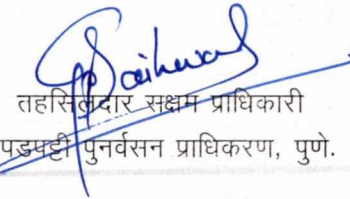 तहसिलदार सक्षम प्राधिकारी
पडपट्टी पुनर्वसन प्राधिकरण, पुणे.